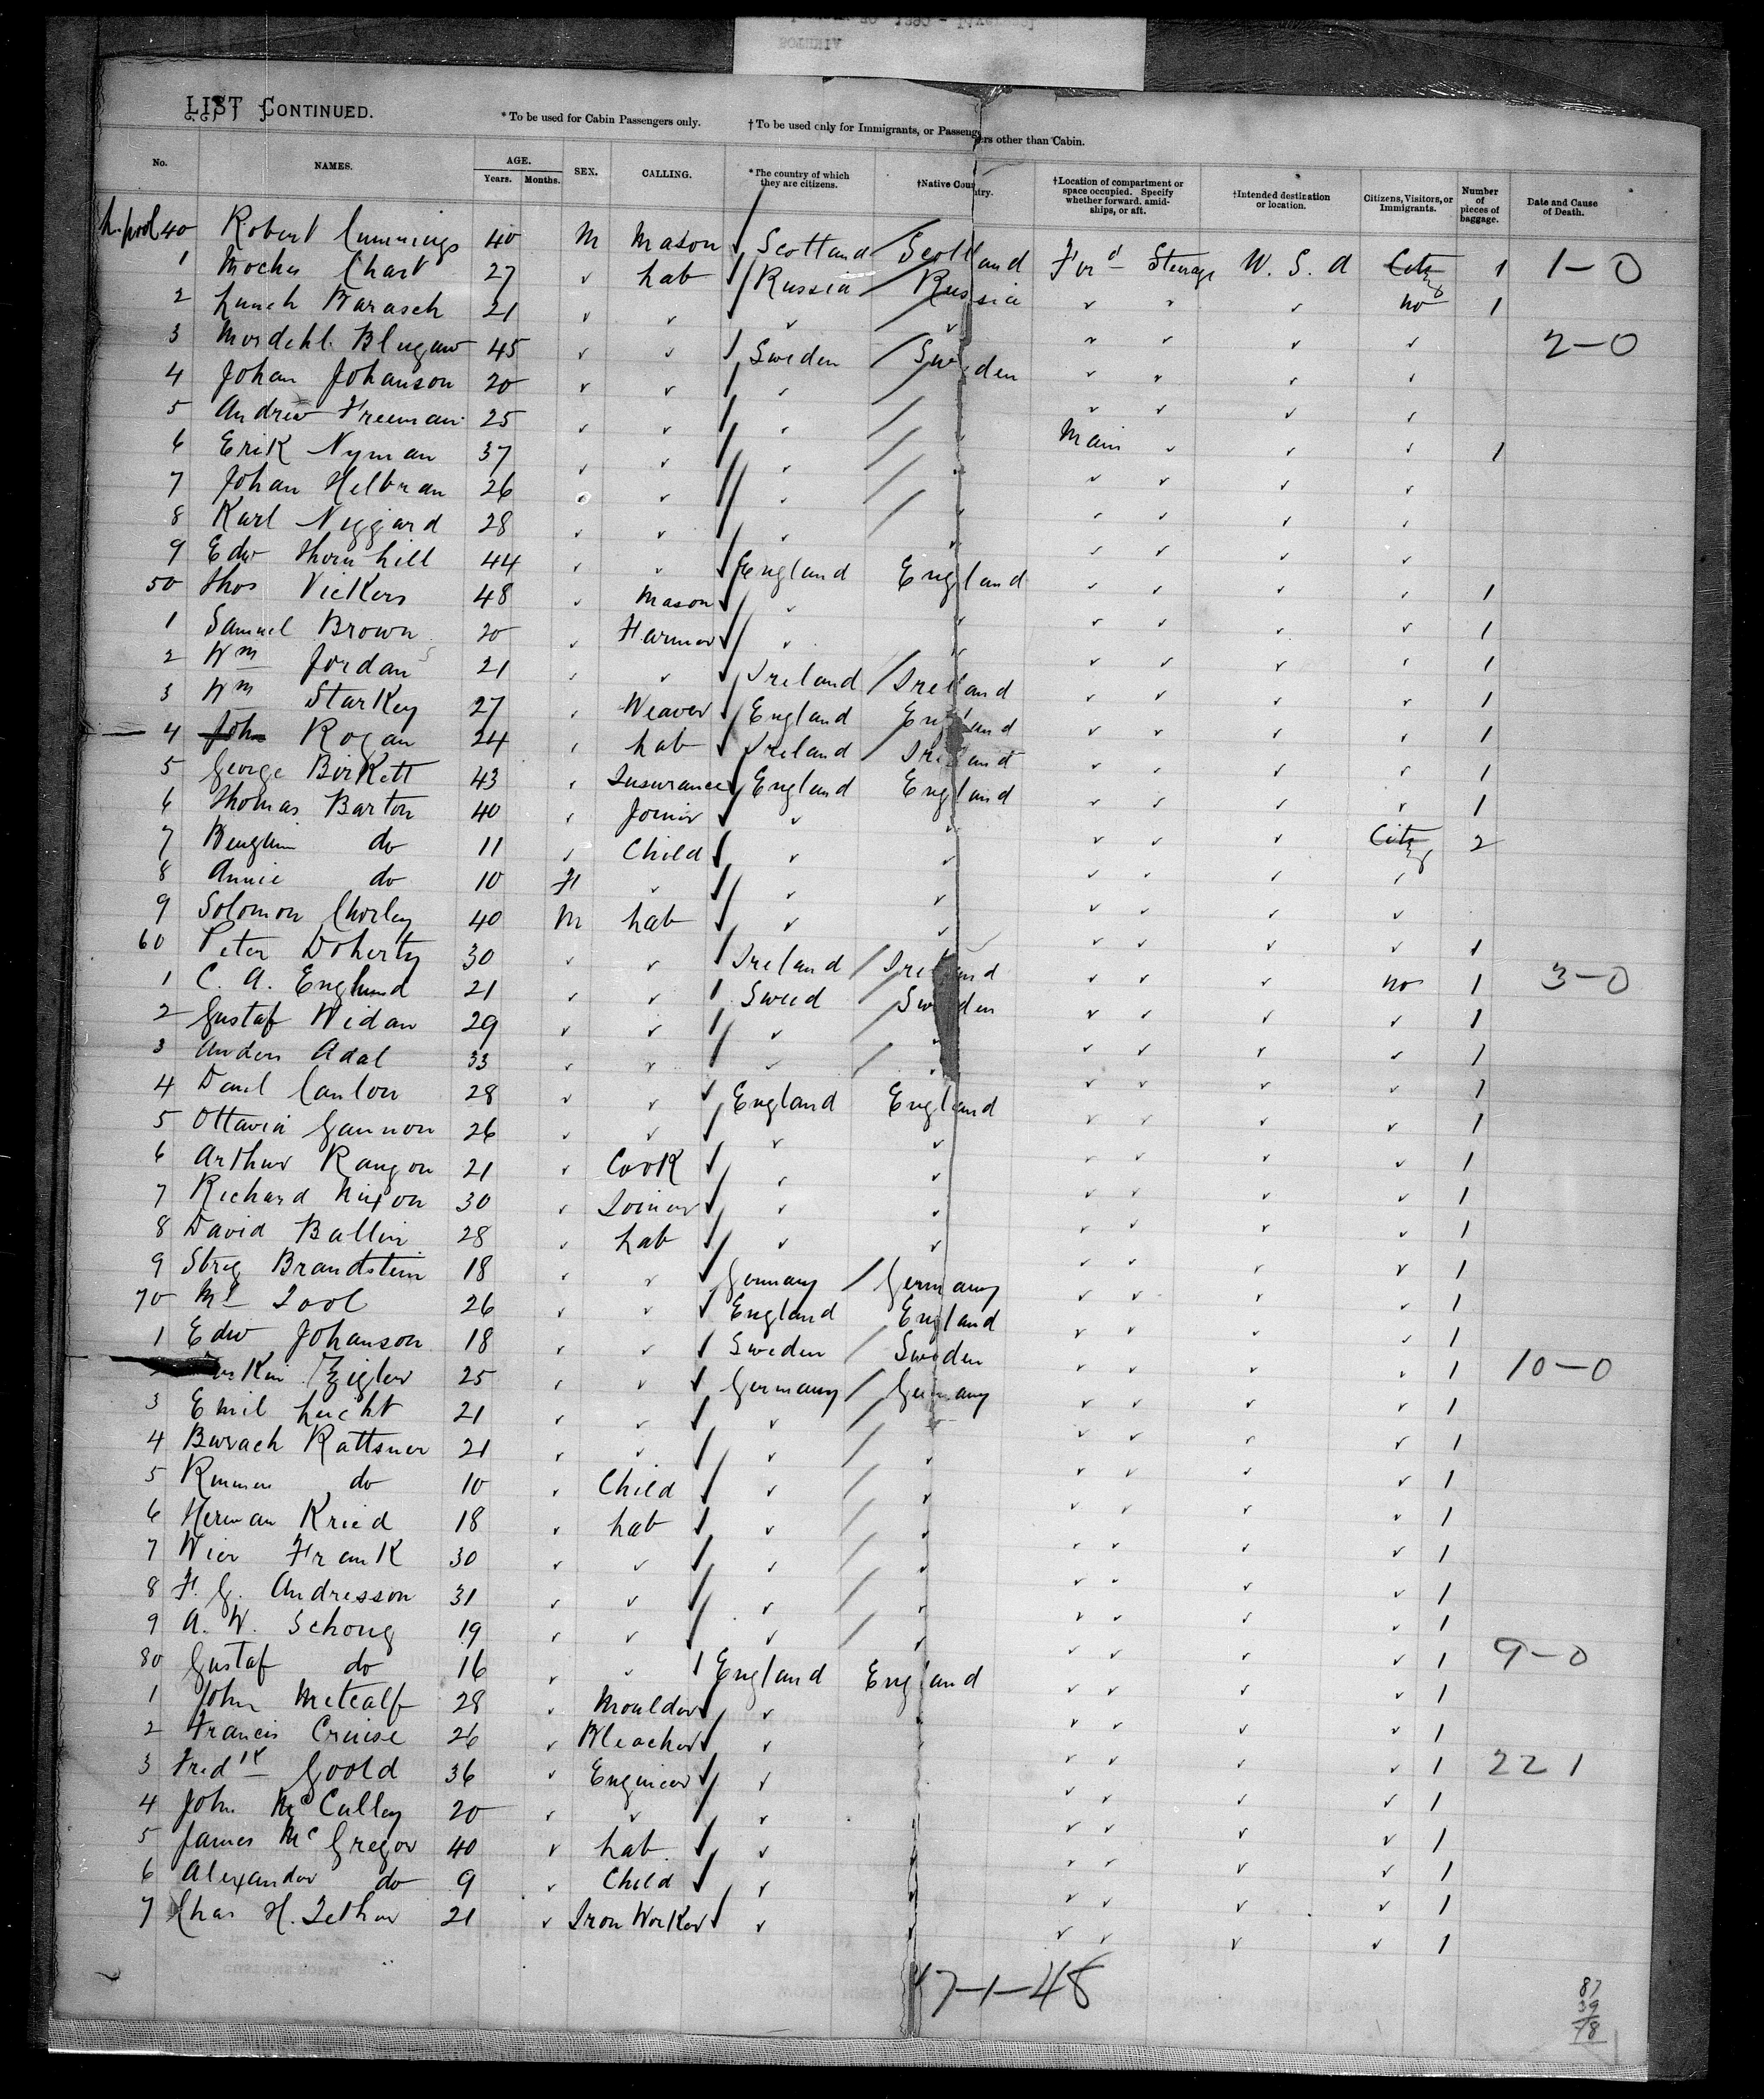 LIST CONTINUED. *To be used for Cabin Passengers only. †To be used only for Immigrants, or Passengers other than Cabin.
No. NAMES. AGE. Years. Months. SEX. CALLING. *The country of which they are citizens. †Native Country. †Location of compartment or space occupied. Specify whether forward, amidships, or aft. †Intended destination or location. Citizens, Visitors, or Immigrants. Number of pieces of baggage. Date and Cause of Death.
L.pool 40 Robert Cummings 40 M Mason Scotland Scotland For'd Steerage U.S.A Citz 1 1-0
1 Moches Chart 27 ✓ Lab Russia Russia ✓ ✓ ✓ no 1
2 Barasch 21 ✓ ✓ ✓ ✓ ✓ ✓ ✓ ✓ 2-0
3 45 ✓ ✓ Sweden Sweden ✓ ✓ ✓ ✓
4 Johan Johanson 20 ✓ ✓ ✓ ✓ ✓ ✓ ✓
5 Andrew Freeman 25 ✓ ✓ ✓ ✓ Main ✓ ✓ ✓ 1
6 Erik Nyman 37 ✓ ✓ ✓ ✓ ✓ ✓ ✓ ✓
7 Johan Helbran 26 ✓ ✓ ✓ ✓ ✓ ✓ ✓ ✓
8 Karl Niggard 28 ✓ ✓ ✓ ✓ ✓ ✓ ✓ ✓
9 Edw Thornhill 44 ✓ ✓ England England ✓ ✓ ✓ ✓ 1
50 Thos Vickers 48 ✓ Mason ✓ ✓ ✓ ✓ ✓ ✓ 1
1 Samuel Brown 20 ✓ Farmer ✓ ✓ ✓ ✓ ✓ ✓ 1
2 Wm Jordan 21 ✓ ✓ Ireland Ireland ✓ ✓ ✓ ✓ 1
3 Wm Starkey 27 ✓ Weaver England England ✓ ✓ ✓ ✓ 1
4 John Rogan 24 ✓ Lab Ireland Ireland ✓ ✓ ✓ ✓ 1
5 George Birkett 43 ✓ Insurance England England ✓ ✓ ✓ ✓ 1
6 Thomas Barton 40 ✓ Joiner ✓ ✓ ✓ ✓ ✓ Citz 2
7 do 11 ✓ Child ✓ ✓ ✓ ✓ ✓ ✓
8 Annie do 10 F ✓ ✓ ✓ ✓ ✓ ✓ ✓
9 Solomon Chorley 40 M Lab ✓ ✓ ✓ ✓ ✓ ✓ 1
60 Peter Doherty 30 ✓ ✓ Ireland Ireland ✓ ✓ ✓ no 1 3-0
1 C. A. Englund 21 ✓ ✓ Swed Sweden ✓ ✓ ✓ ✓ 1
2 Gustaf Widan 29 ✓ ✓ ✓ ✓ ✓ ✓ ✓ ✓ 1
3 Anders Adal 33 ✓ ✓ ✓ ✓ ✓ ✓ ✓ ✓ 1
4 Danl Canlon 28 ✓ ✓ England England ✓ ✓ ✓ ✓ 1
5 Ottavia Gannon 26 ✓ ✓ ✓ ✓ ✓ ✓ ✓ ✓ 1
6 Arthur Rangon 21 ✓ Cook ✓ ✓ ✓ ✓ ✓ ✓ 1
7 Richard Nixon 30 ✓ Joiner ✓ ✓ ✓ ✓ ✓ ✓ 1
8 David Ballin 28 ✓ Lab ✓ ✓ ✓ ✓ ✓ ✓ 1
9 Brandstein 18 ✓ ✓ Germany Germany ✓ ✓ ✓ ✓ 1
70 26 ✓ ✓ England England ✓ ✓ ✓ ✓ 1
1 Edw Johanson 18 ✓ ✓ Sweden Sweden ✓ ✓ ✓ ✓ 1 10-0
Zigler 25 ✓ ✓ Germany Germany ✓ ✓ ✓ ✓ 1
3 Emil Lucht 21 ✓ ✓ ✓ ✓ ✓ ✓ ✓ ✓ 1
4 Barach Rattsner 21 ✓ ✓ ✓ ✓ ✓ ✓ ✓ ✓ 1
5 do 10 ✓ Child ✓ ✓ ✓ ✓ ✓ ✓ 1
6 Herman Kried 18 ✓ Lab ✓ ✓ ✓ ✓ ✓ ✓ 1
7 Wier Frank 30 ✓ ✓ ✓ ✓ ✓ ✓ ✓ ✓ 1
8 F. G. Andresson 31 ✓ ✓ ✓ ✓ ✓ ✓ ✓ ✓ 1
9 A. W. Schong 19 ✓ ✓ ✓ ✓ ✓ ✓ ✓ ✓ 1 9-0
80 Gustaf do 16 ✓ ✓ England England ✓ ✓ ✓ ✓ 1
1 John Metcalf 28 ✓ Moulder ✓ ✓ ✓ ✓ ✓ 1
2 Francis Cruise 26 ✓ Bleacher ✓ ✓ ✓ ✓ ✓ 1 22 1
3 Fredk Goold 36 ✓ Engineer ✓ ✓ ✓ ✓ ✓ 1
4 John McCulley 20 ✓ ✓ ✓ ✓ ✓ ✓ ✓ 1
5 James McGregor 40 ✓ Lab ✓ ✓ ✓ ✓ ✓ ✓ 1
6 Alexander do 9 ✓ Child ✓ ✓ ✓ ✓ ✓ ✓ 1
7 Chas H. 21 ✓ Iron Worker ✓ ✓ ✓ ✓ ✓ ✓ 1
47-1-48
87
39
48